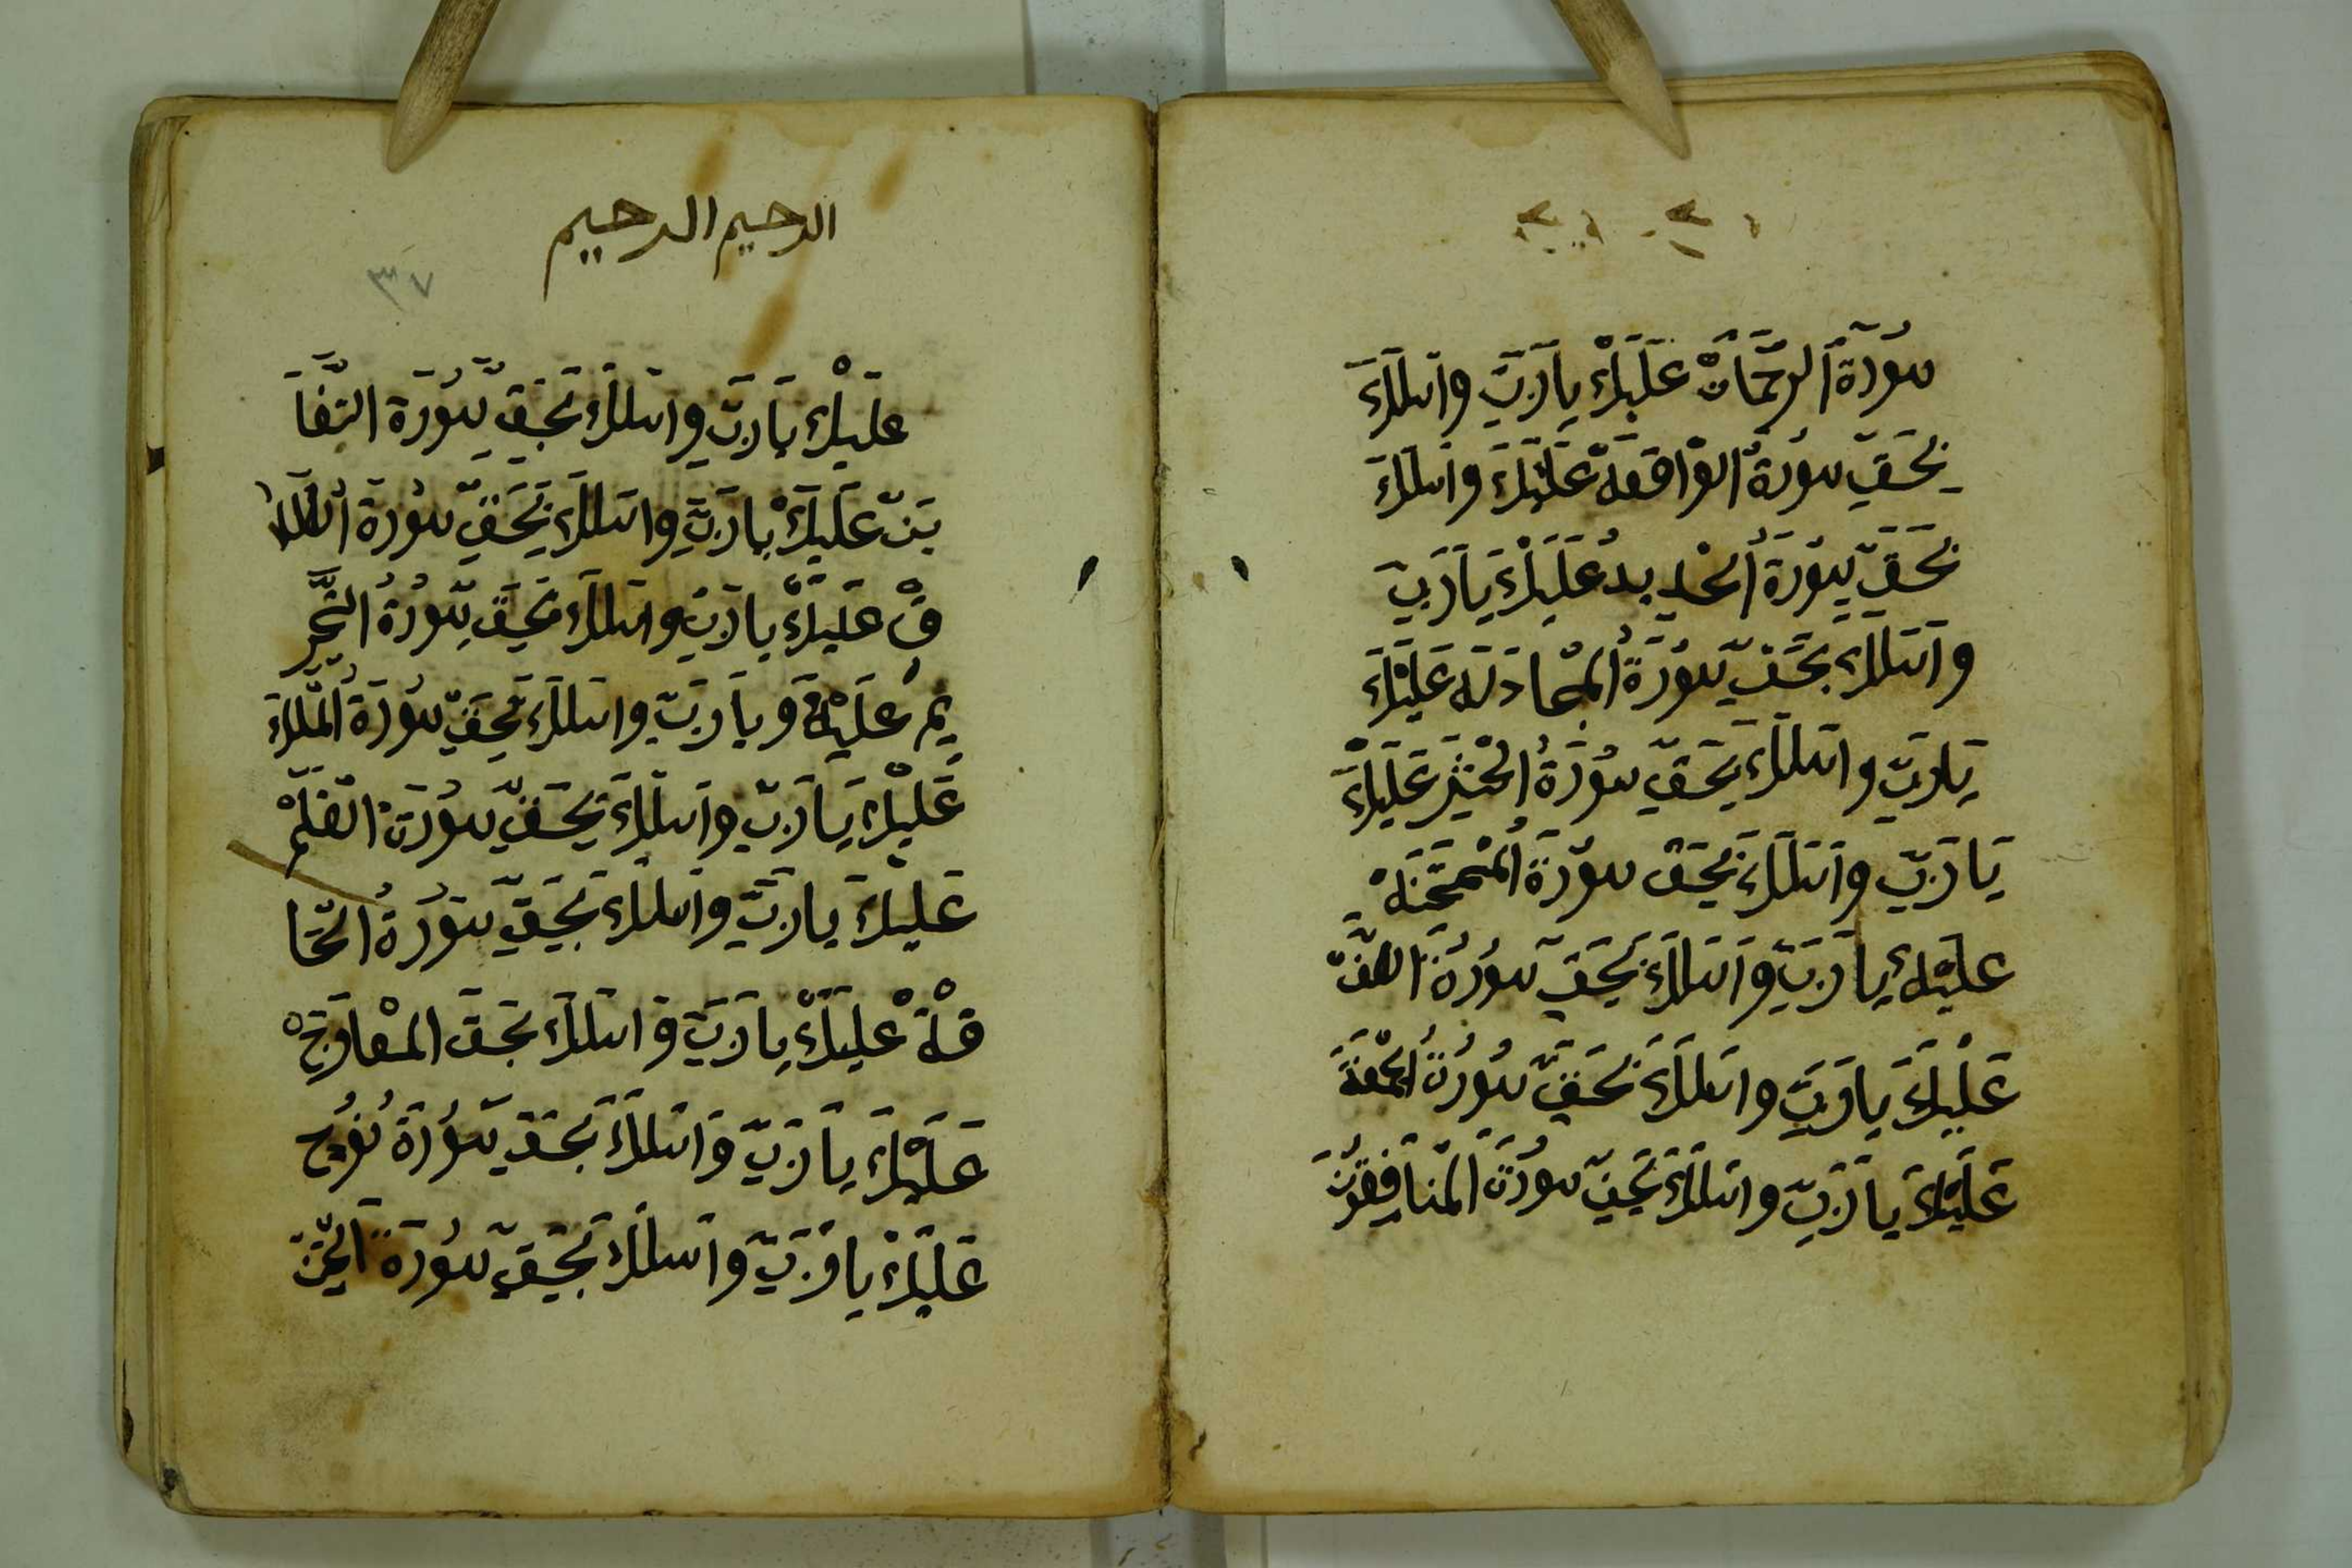 سورة الرحمان عليك يا رب واسلك
بحق سورة الواقعة عليك واسلك
بحق سورة الحديد عليك يا رب
واسلك بحق سورة المجادلة عليك
يا رب واسلك بحق سورة الحشر عليك
يا رب واسلك بحق سورة الممتحنة
عليك يا رب واسلك بحق سورة الصف
عليك يا رب واسلك بحق سورة الجمعة
عليك يا رب واسلك بحق سورة المنافقون
الرحيم الرحيم
٣٧
عليك يا رب واسلك بحق سورة التغا
بن عليك يا رب واسلك بحق سورة الطلا
ق عليك يا رب واسلك بحق سورة التحر
يم عليك و يا رب واسلك بحق سورة الملك
عليك يا رب واسلك بحق سورة القلم
عليك يا رب واسلك بحق سورة الحا
قة عليك يا رب واسلك بحق المعارج
عليك يا رب واسلك بحق سورة نوح
عليك يا رب واسلك بحق سورة الجن